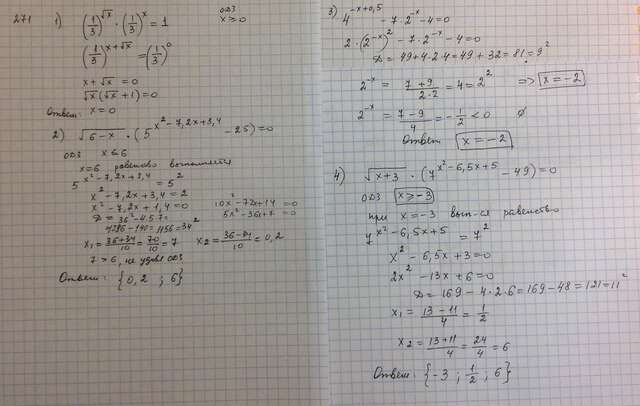 271 1) (1/3)^√x · (1/3)^x = 1 ОДЗ x ≥ 0
(1/3)^(x+√x) = (1/3)^0
x + √x = 0
√x(√x + 1) = 0
Ответ: x = 0
2) √(6-x) · (5^(x²-7,2x+3,4) - 25) = 0
ОДЗ x ≤ 6
x=6 равенство выполняется
5^(x²-7,2x+3,4) = 5²
x² - 7,2x + 3,4 = 2
x² - 7,2x + 1,4 = 0 10x² - 72x + 14 = 0
5x² - 36x + 7 = 0
D = 36² - 4·5·7 =
1296 - 140 = 1156 = 34²
x₁ = (36+34)/10 = 70/10 = 7 x₂ = (36-34)/10 = 0,2
7 > 6, не удовл ОДЗ
Ответ: {0,2 ; 6}
3) 4^(-x+0,5) - 7·2^(-x) - 4 = 0
2·(2^(-x))² - 7·2^(-x) - 4 = 0
D = 49 + 4·2·4 = 49 + 32 = 81 = 9²
2^(-x) = (7+9)/(2·2) = 4 = 2² => x = -2
2^(-x) = (7-9)/4 = -1/2 < 0 ∅
Ответ x = -2
4) √(x+3) · (7^(x²-6,5x+5) - 49) = 0
ОДЗ x ≥ -3
при x = -3 вып-ся равенство
7^(x²-6,5x+5) = 7²
x² - 6,5x + 3 = 0
2x² - 13x + 6 = 0
D = 169 - 4·2·6 = 169 - 48 = 121 = 11²
x₁ = (13-11)/4 = 1/2
x₂ = (13+11)/4 = 24/4 = 6
Ответ: {-3 ; 1/2 ; 6}